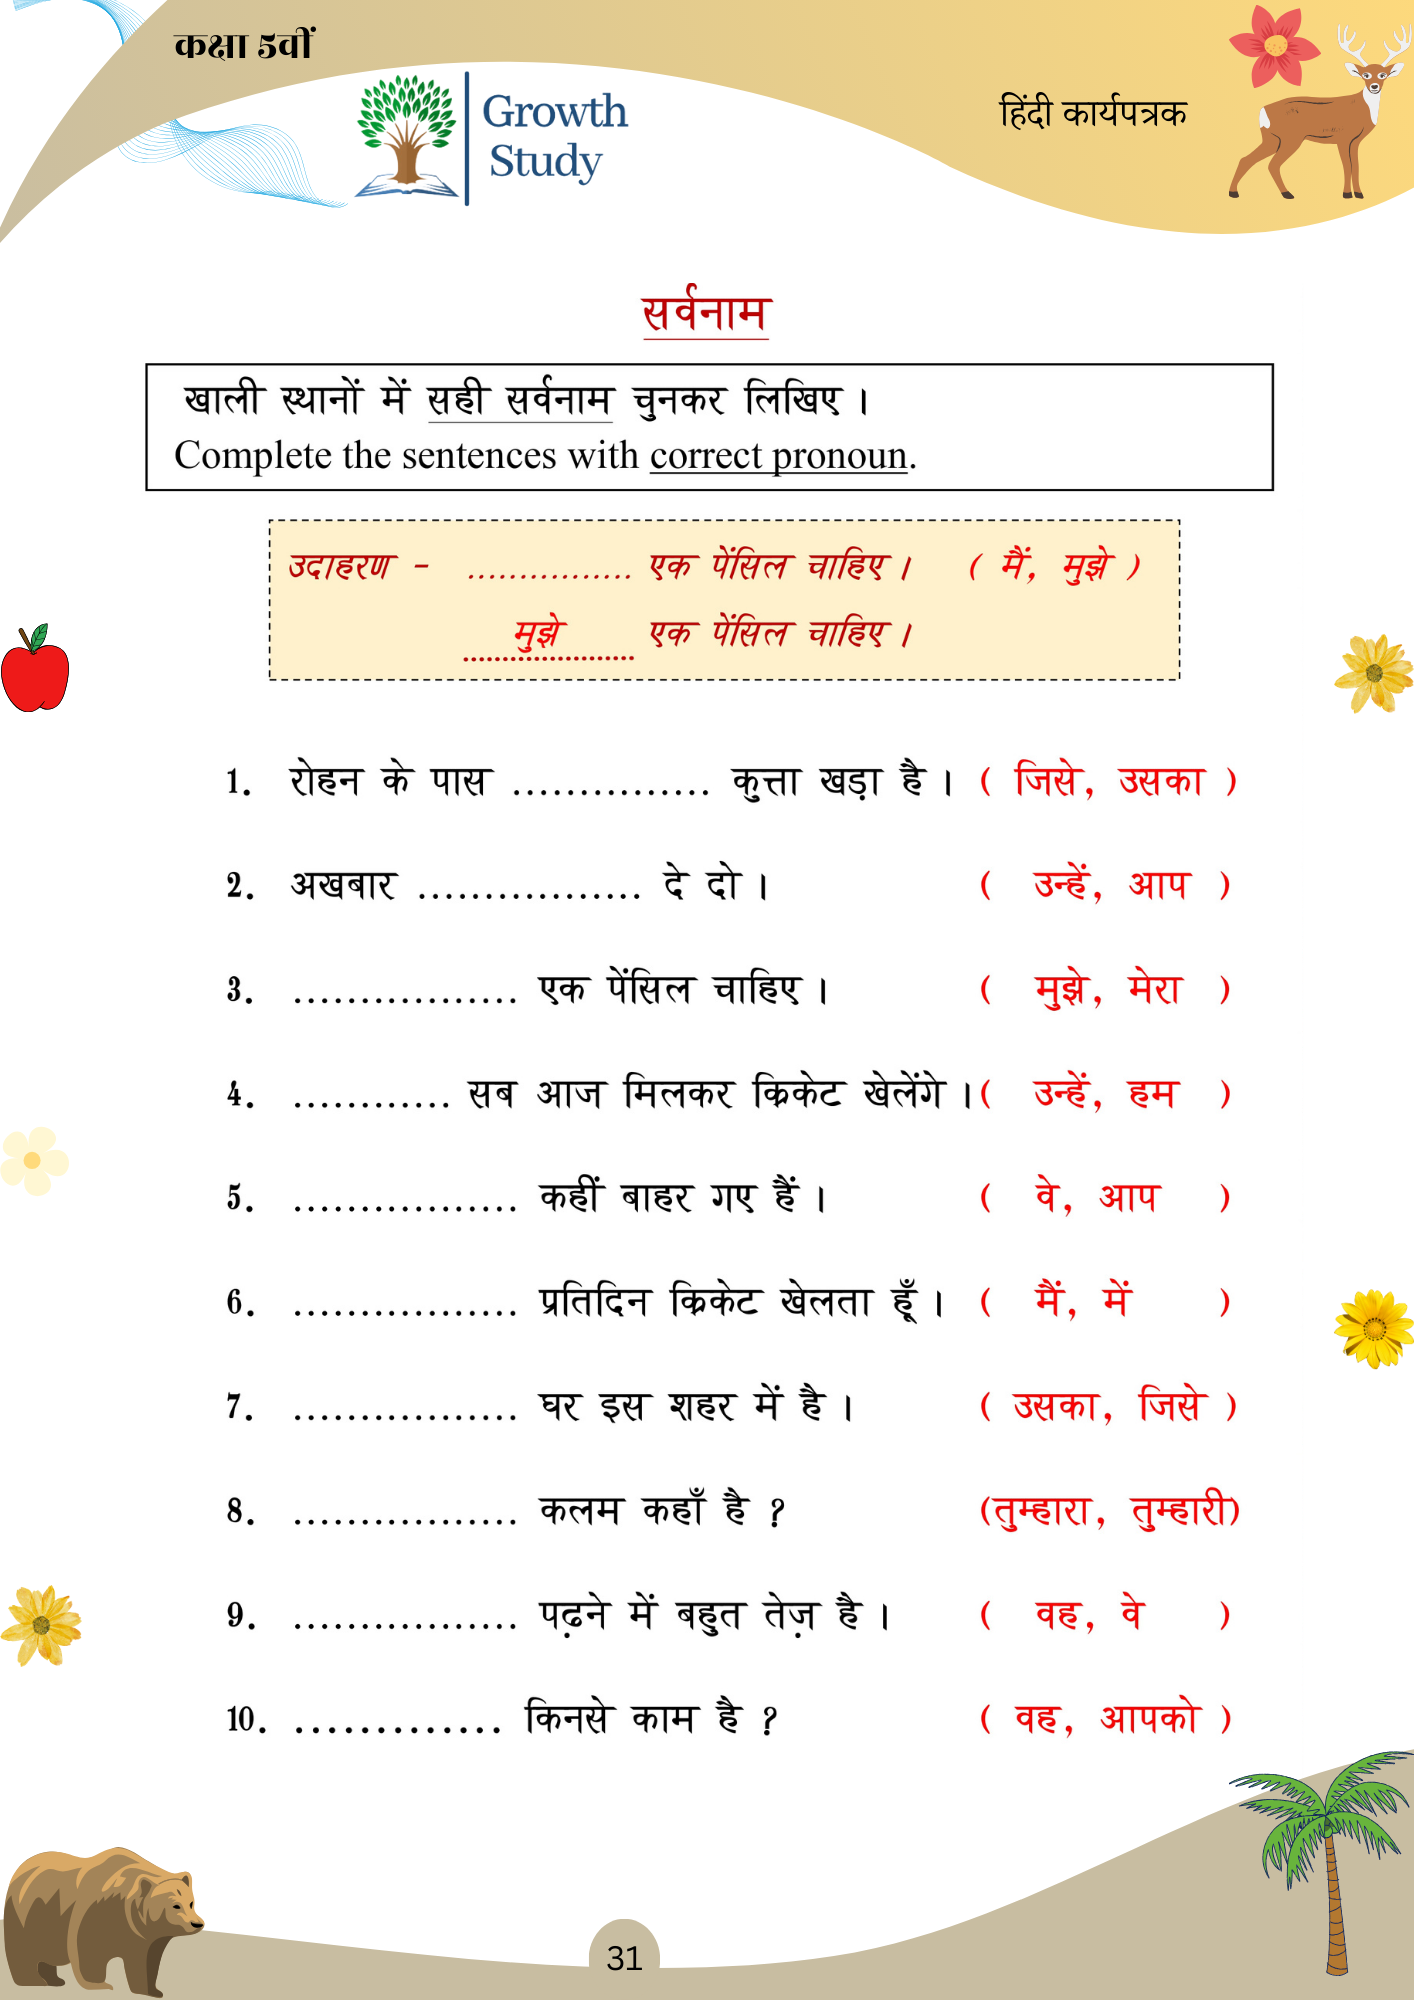 कक्षा 5वीं
Growth
Study
हिंदी कार्यपत्रक
सर्वनाम
खाली स्थानों में सही सर्वनाम चुनकर लिखिए ।
Complete the sentences with correct pronoun.
उदाहरण - ................ एक पेंसिल चाहिए । ( मैं, मुझे )
मुझे ...................... एक पेंसिल चाहिए ।
1. रोहन के पास ............... कुत्ता खड़ा है । ( जिसे, उसका )
2. अखबार ................. दे दो । ( उन्हें, आप )
3. ................. एक पेंसिल चाहिए । ( मुझे, मेरा )
4. ............ सब आज मिलकर क्रिकेट खेलेंगे । ( उन्हें, हम )
5. ................. कहीं बाहर गए हैं । ( वे, आप )
6. ................. प्रतिदिन क्रिकेट खेलता हूँ । ( मैं, में )
7. ................. घर इस शहर में है । ( उसका, जिसे )
8. ................. कलम कहाँ है ? (तुम्हारा, तुम्हारी)
9. ................. पढ़ने में बहुत तेज़ है । ( वह, वे )
10. ............. किनसे काम है ? ( वह, आपको )
31